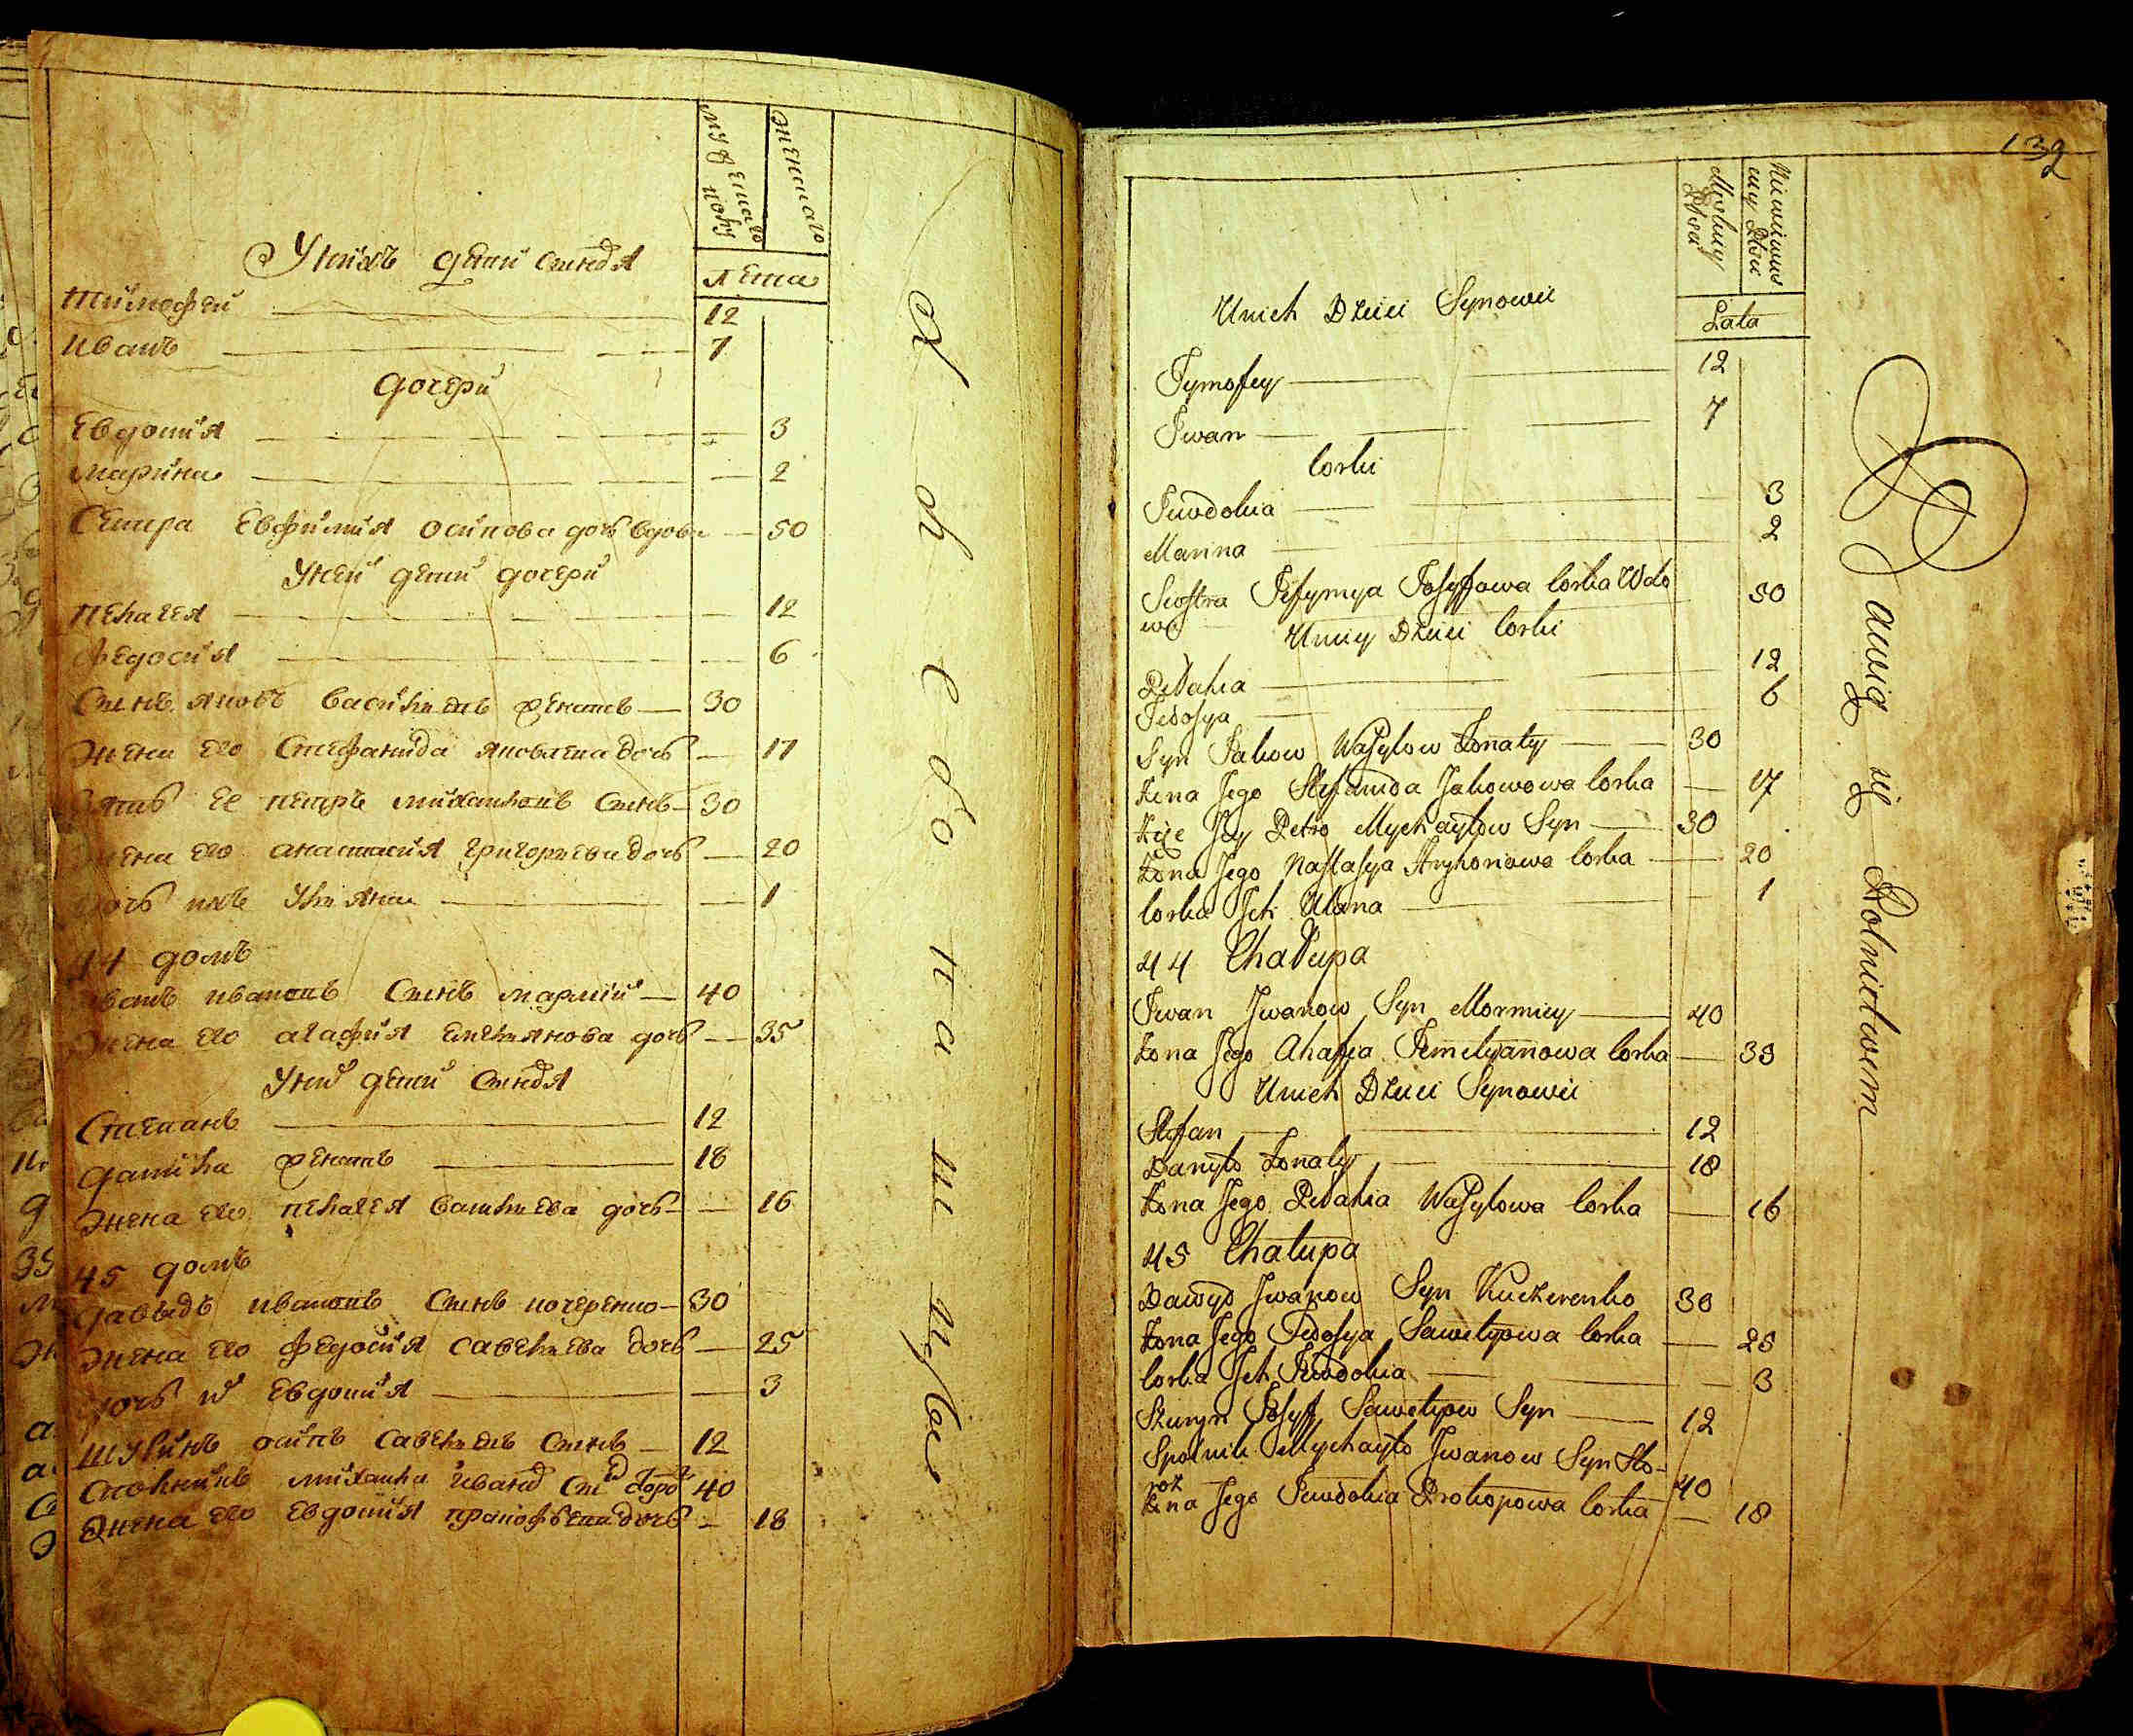 мужескаго полу
женскаго
лета
У нихъ дети сыновя
тимофей 12
иванъ 7
дочери
евдокия 3
марина 2
сестра евфимия осипова дочь вдова 50
у ней дети дочери
пелагея 12
федосия 6
сынъ яковъ васильевъ женатъ 30
жена его стефанида яковлева дочь 17
зять ее петръ михайловъ сынъ 30
жена его анастасия григорьева дочь 20
дочь ихъ ульяна 1
44 домъ
иванъ ивановъ сынъ
40
жена его агафия емельянова дочь 35
у них дети сыновя
степанъ 12
данила женатъ 18
жена его пелагея васильева дочь 16
45 домъ
давыдъ ивановъ сынъ кучеренко 30
жена его федосия савельева дочь 25
дочь их евдокия 3
шуринъ осипъ савельевъ сынъ 12
михайла иванов
40
жена его евдокия прокофьева дочь 18
132
Lata
Unich Dzieci Synowie
Tymofey 12
Iwan 7
Corki
Iewdokia 3
Maryna 2
Siostra Iefymya Iosyffowa Corka Wdo
wa 50
Uniey Dzieci Corki
Pełahia 12
Fedosya 6
Syn Iakow Wasylow Zonaty 30
Zona Jego Stefanida Jakowowa Corka 17
Zięć Jey Petro Mychayłow Syn 30
Zona Jego Nastasya Hryhoriowa Corka 20
Corka Jch Ulana 1
44 Chałupa
Iwan Jwanow Syn Mormiey 40
Zona Jego Ahafia Iemelyanowa Corka 35
Unich Dzieci Synowie
Stefan 12
Danyło Zonaty 18
Zona Jego Pełahia Wasylowa Corka 16
45 Chałupa
Dawyd Jwanow Syn Kuczerenko 30
Zona Jego Fedosya Sawelyowa Corka 25
Corka Jch Iewdokia 3
Szuryn Iosyf Sawelyow Syn 12
Spolnik Mychayło Jwanow Syn Sko-
roz 40
Zona Jego Iewdokia Prokopowa Corka 18
Bawią się Rolnictwem